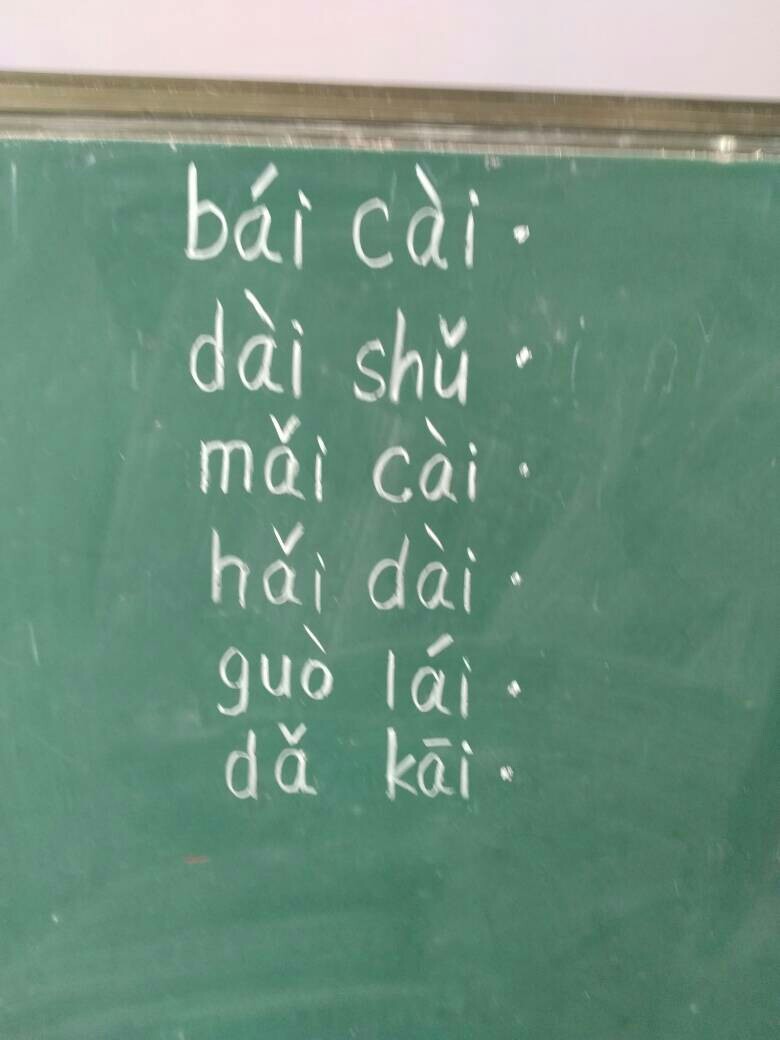 bái cài ·
dài shǔ ·
mǎi cài ·
hǎi dài ·
guò lái ·
dǎ kāi ·